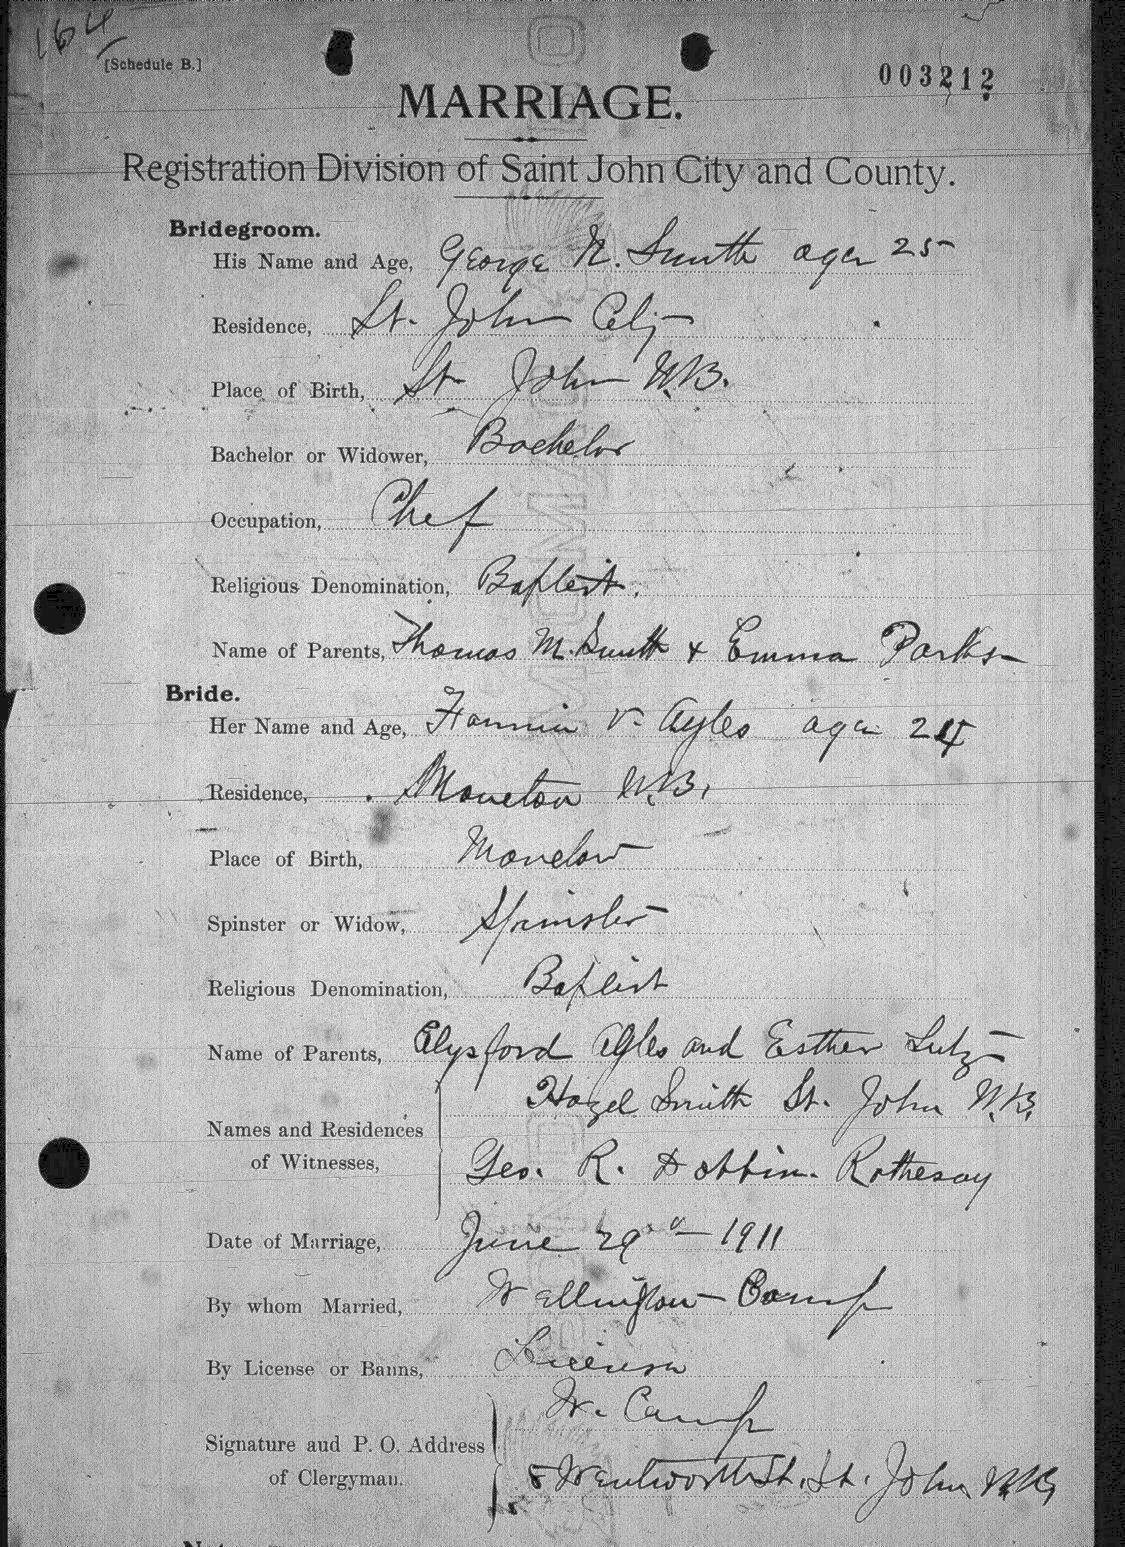 164
[Schedule B.]
003212
MARRIAGE.
Registration Division of Saint John City and County.
Bridegroom.
His Name and Age, George N. Smith age 25
Residence, St. John City
Place of Birth, St John N.B.
Bachelor or Widower, Bachelor
Occupation, Chef
Religious Denomination, Baptist.
Name of Parents, Thomas M. Smith & Emma Parks
Bride.
Her Name and Age, Fannie V. Ayles age 24
Residence, Moncton N.B.
Place of Birth, Moncton
Spinster or Widow, Spinster
Religious Denomination, Baptist
Name of Parents, Alysford Ayles and Esther Lutz
Hazel Smith St. John N.B.
Names and Residences
of Witnesses,
Geo. R. Dobbin. Rothesay
Date of Marriage, June 29 1911
By whom Married, Wellington Camp
By License or Banns, License
W. Camp
Signature and P. O. Address
of Clergyman.
8 Wentworth St. St. John N.B.